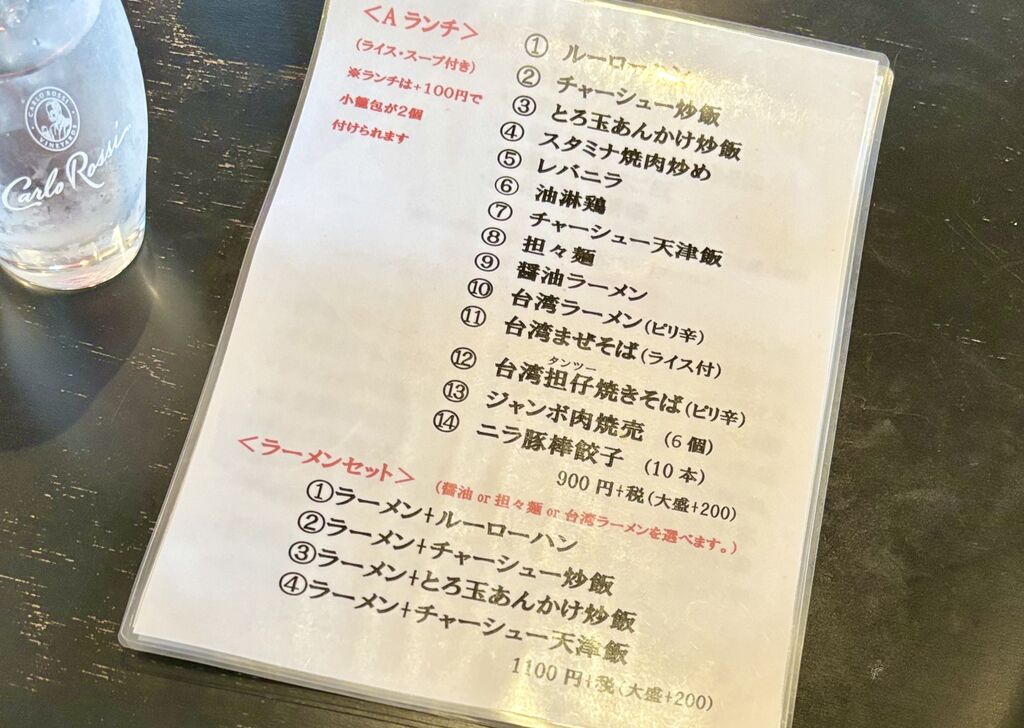 CARLO ROSSI
VINEYARDS
Carlo Rossi
＜A ランチ＞
(ライス・スープ付き)
※ランチは+100円で
小籠包が2個
付けられます
① ルーローハン
② チャーシュー炒飯
③ とろ玉あんかけ炒飯
④ スタミナ焼肉炒め
⑤ レバニラ
⑥ 油淋鶏
⑦ チャーシュー天津飯
⑧ 担々麺
⑨ 醤油ラーメン
⑩ 台湾ラーメン(ピリ辛)
⑪ 台湾まぜそば(ライス付)
タンツー
⑫ 台湾担仔焼きそば(ピリ辛)
⑬ ジャンボ肉焼売 (6個)
⑭ ニラ豚棒餃子 (10本)
900円+税(大盛+200)
＜ラーメンセット＞ (醤油 or 担々麺 or 台湾ラーメンを選べます。)
①ラーメン+ルーローハン
②ラーメン+チャーシュー炒飯
③ラーメン+とろ玉あんかけ炒飯
④ラーメン+チャーシュー天津飯
1100円+税(大盛+200)